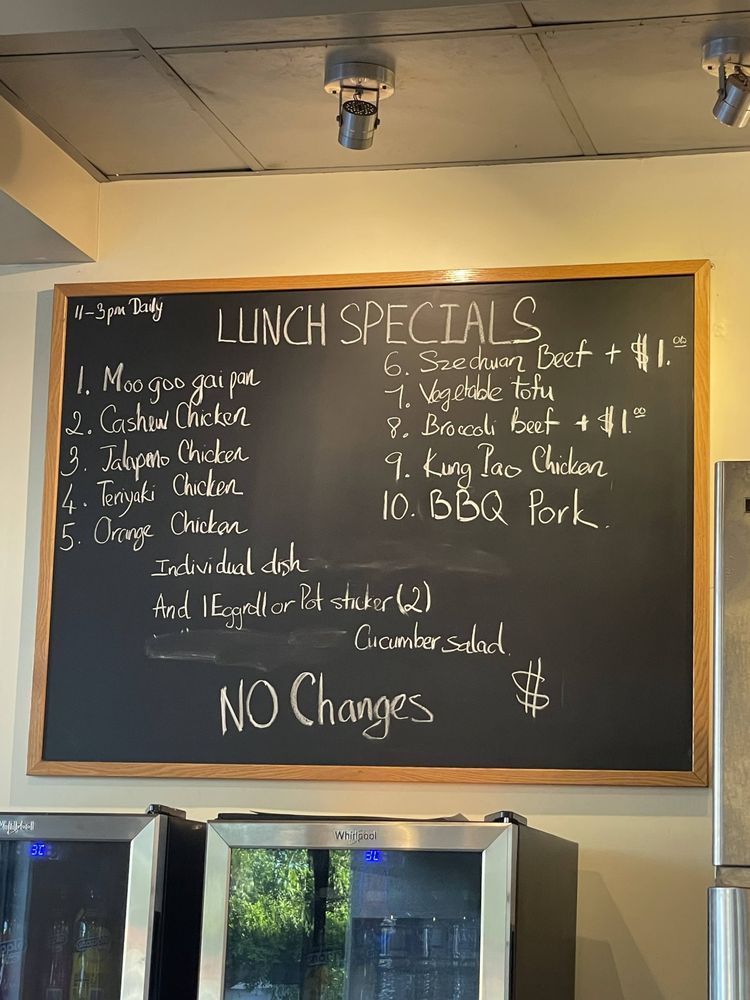 11-3pm Daily
LUNCH SPECIALS
1. Moo goo gai pan
2. Cashew Chicken
3. Jalapeno Chicken
4. Teriyaki Chicken
5. Orange Chicken
6. Szechuan Beef + $1.00
7. Vegetable tofu
8. Broccoli Beef + $1.00
9. Kung Pao Chicken
10. BBQ Pork.
Individual dish
And 1 Eggroll or Pot sticker (2)
Cucumber salad.
NO Changes
$
Whirlpool
Whirlpool